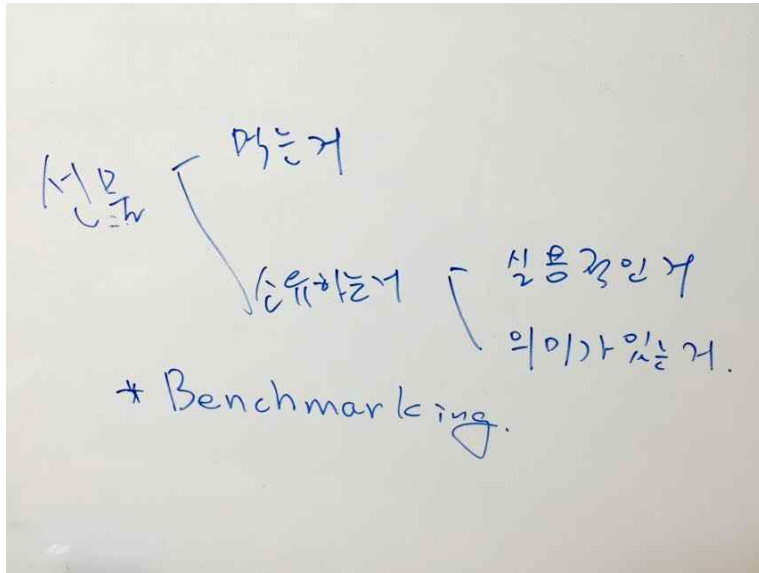 선물
먹는거
소유하는거
실용적인거
의미가 있는거.
* Benchmarking.